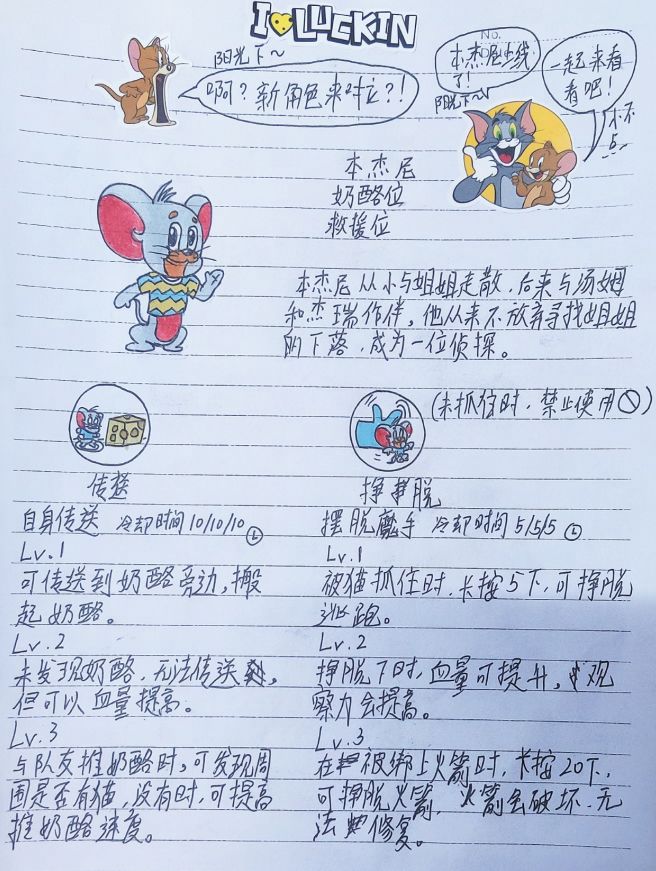 I LUCKIN
No.
阳光下~
啊？新角色来对立？！
本杰尼上线
了！
阳光下~
一起来看
看吧！
小不
点
本杰尼
奶酪位
救援位
本杰尼从小与姐姐走散，后来与汤姆
和杰瑞作伴，他从来不放弃寻找姐姐
的下落，成为一位侦探。
传送
自身传送 冷却时间10/10/10
Lv.1
可传送到奶酪旁边，搬
起奶酪。
Lv.2
未发现奶酪，无法传送，
但可以血量提高。
Lv.3
与队友推奶酪时，可发现周
围是否有猫，没有时，可提高
推奶酪速度。
(未抓住时，禁止使用)
挣脱
摆脱魔手 冷却时间5/5/5
Lv.1
被猫抓住时，长按5下，可挣脱
逃跑。
Lv.2
挣脱下时，血量可提升，观
察力会提高。
Lv.3
在被绑上火箭时，长按20下，
可挣脱火箭，火箭会破坏，无
法修复。